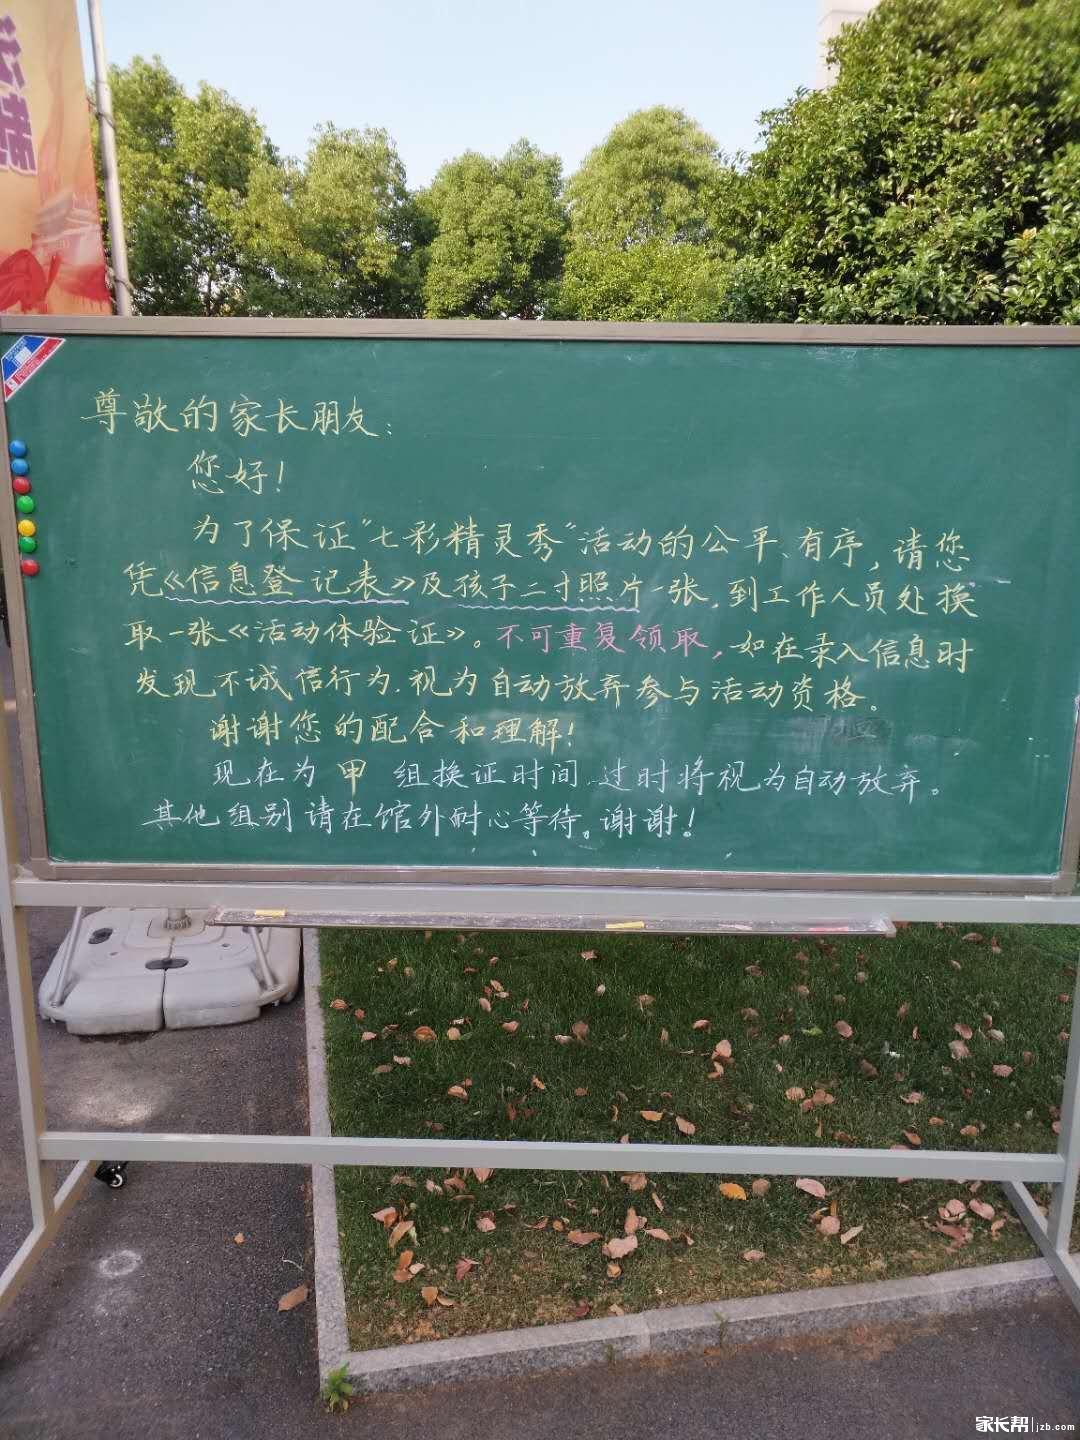 法制
尊敬的家长朋友：
您好！
为了保证"七彩精灵秀"活动的公平、有序，请您
凭《信息登记表》及孩子二寸照片一张，到工作人员处换
取一张《活动体验证》。不可重复领取，如在录入信息时
发现不诚信行为，视为自动放弃参与活动资格。
谢谢您的配合和理解！
现在为 甲 组换证时间，过时将视为自动放弃。
其他组别请在馆外耐心等待。谢谢！
家长帮 jzb.com